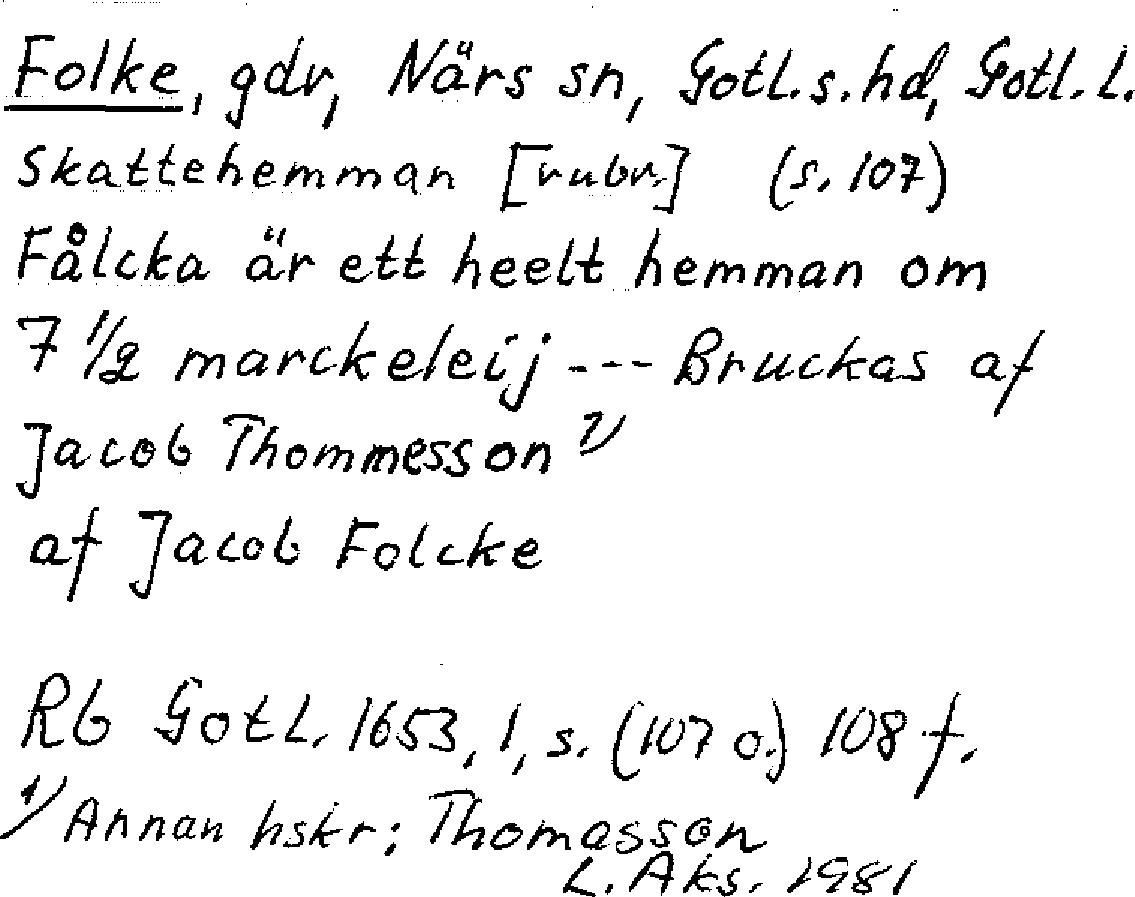 Folke, gdr, Närs sn, Gotl.s.hd, Gotl.l.
Skattehemman [rubr.] (s. 107)
Fålcka är ett heelt hemman om
7 1/2 marckeleij --- Bruckas af
Jacob Thommesson 1)
af Jacob Folcke
Rb Gotl. 1653, 1, s. (107 o.) 108 f.
1) Annan hskr; Thomasson
L. Aks. 1981